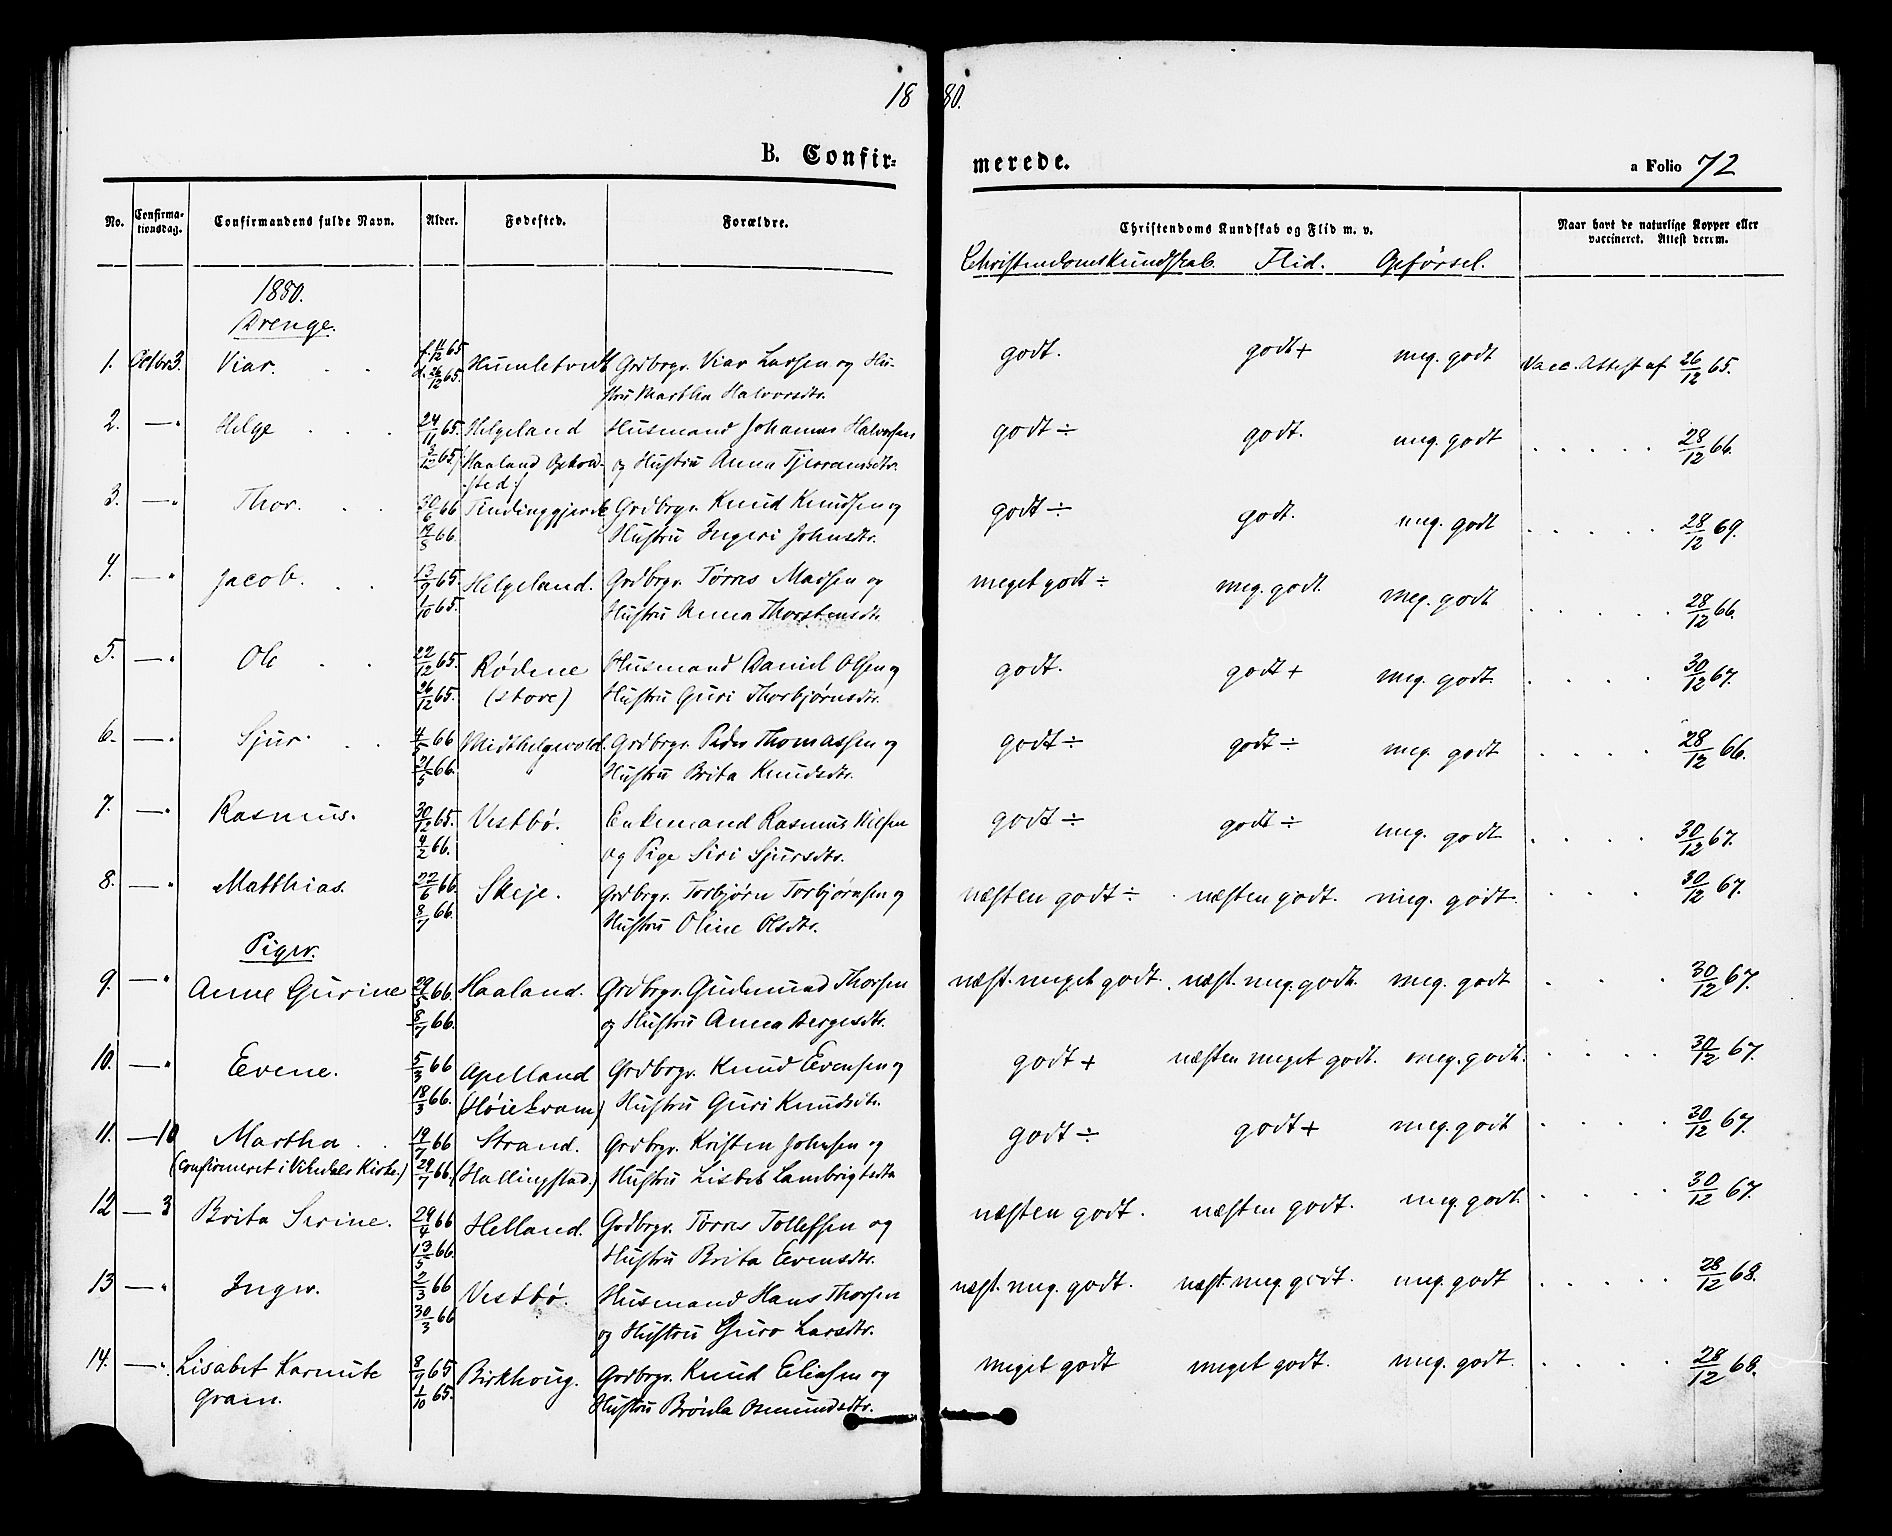 18 80.
B. Confir- merede. a Folio 72
No. Confirma-tionsdag. Confirmandens fulde Navn. Alder. Fødested. Forældre. Christendoms Kundskab og Flid m. v. Naar havt de naturlige Kopper eller vaccineret. Attest derom.
Christendomskundskab. Flid. Opførsel.
1880.
Drenge.
1. Octbr 3. Viar. f. 4/12 65 Humletvedt Grdbrgr. Viar Larsen og Hu- godt. godt + meg. godt Vacc. Attest af 26/12 65.
d. 26/12 65. stru Martha Halvorsdtr.
2. — " Helge 24/11 65. Helgeland Husmand Johannes Halvorsen godt ÷ godt. meg. godt 28/12 66.
3/12 65. (Haaland Opholds- og Hustru Anna Tjerransdtr.
sted:)
3. — " Thor. 30/6 66 Tindinggjerde Grdbrgr. Knud Knudsen og godt ÷ godt. meg. godt 28/12 69.
19/8 66. Hustru Ingeri Johnsdtr.
4. — " Jacob. 13/9 65. Helgeland. Grdbrgr. Tørres Madsen og meget godt ÷ meg. godt. meg. godt 28/12 66.
1/10 65. Hustru Anna Thorstensdtr.
5. — " Ole 22/12 65. Rødne Husmand Daniel Olsen og godt. godt + meg. godt. 30/12 67.
26/12 65. (store) Hustru Guri Thorbjørnsdtr.
6. — " Sjur. 4/5 66 Midthelgevold. Grdbrgr. Peder Thomassen og godt ÷ godt ÷ meg. godt 28/12 66.
21/5 66. Hustru Brita Knudsdtr.
7. — " Rasmus. 30/12 65. Vestbø. Enkemand Rasmus Nilsen godt ÷ godt ÷ meg. godt 30/12 67.
4/2 66. og Pige Siri Sjursdtr.
8. — " Matthias. 22/6 66. Skeje. Grdbrgr. Torbjørn Torbjørnsen og næsten godt ÷ næsten godt. meg. godt. 30/12 67.
8/7 66. Hustru Oline Olsdtr.
Piger.
9. — " Anne Gurine 29/5 66. Haaland. Grdbrgr. Gudmund Thorsen næst. meget godt. næst. meg. godt. meg. godt 30/12 67.
8/7 66. og Hustru Anna Bergesdtr.
10. — " Evene. 5/3 66 Apelland Grdbrgr. Knud Evensen og godt + næsten meget godt. meg. godt. 30/12 67.
18/3 66. (Høiekvam) Hustru Guri Knudsdtr.
11. — 10 Martha. 19/7 66 Strand. Grdbrgr. Kristen Johnsen og godt ÷ godt + meg. godt 30/12 67.
(confirmeret i Vikedals Kirke.) 29/7 66. (Hallingstad.) Hustru Lisbet Lambrigtsdtr.
12 — 3 Brita Serine. 29/4 66 Helland. Grdbrgr. Tørres Tollefsen og næsten godt. næsten godt. meg. godt. 30/12 67.
13/5 66. Hustru Brita Evensdtr.
13 — " Inger. 2/3 66 Vestbø. Husmand Hans Thorsen næst. meg. godt. næst. meg. godt. meg. godt 28/12 68.
30/3 66 og Hustru Guro Larsdtr.
14. — " Lisabet Karmute 8/9 65 Birkhoug. Grdbrgr. Knud Eliasen og meget godt meget godt. meg. godt. 28/12 68.
Gram. 1/10 65. Hustru Brønla Osmundsdtr.